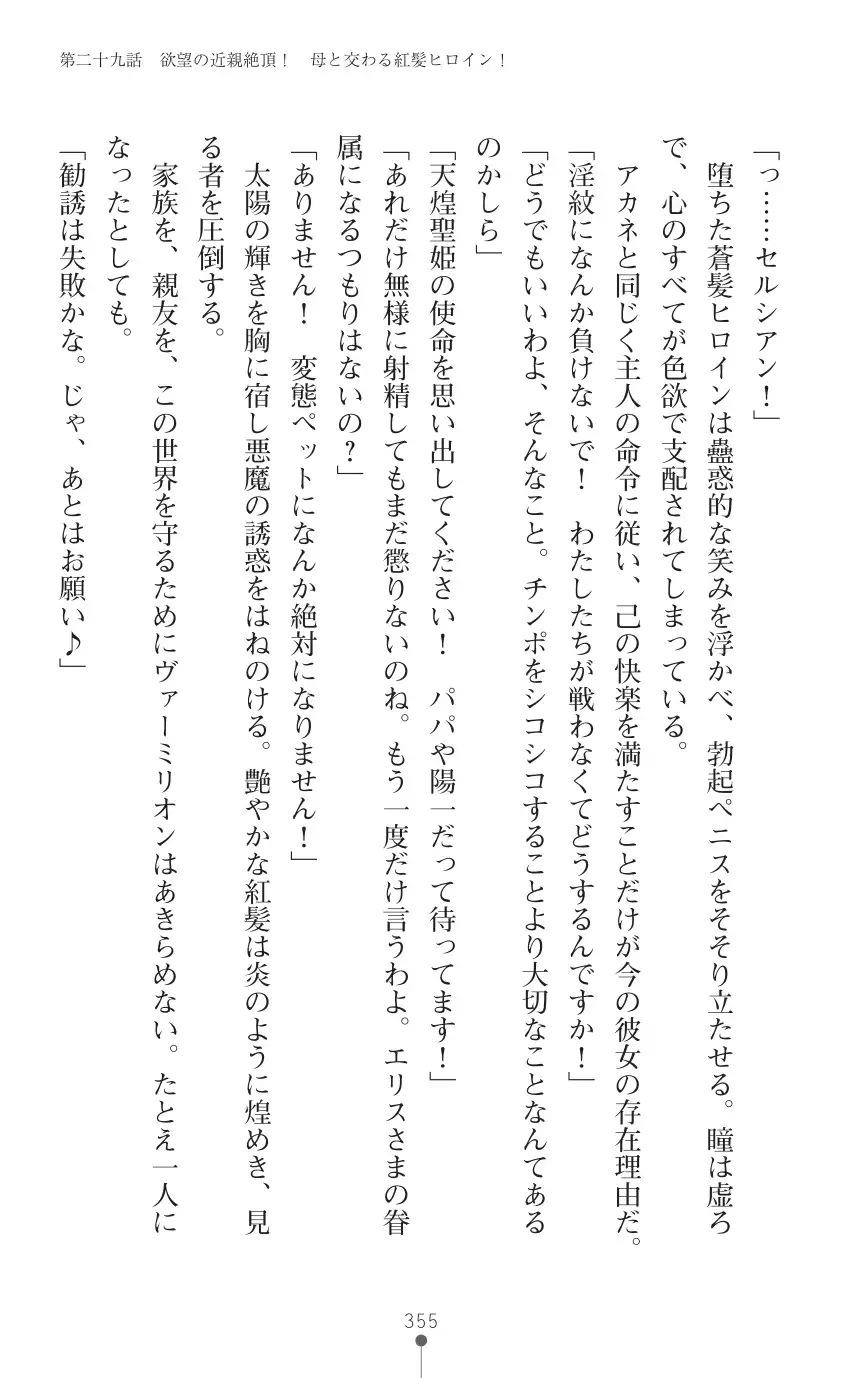 第二十九話　欲望の近親絶頂！　母と交わる紅髪ヒロイン！
「っ……セルシアン！」
　堕ちた蒼髪ヒロインは蠱惑的な笑みを浮かべ、勃起ペニスをそそり立たせる。瞳は虚ろ
で、心のすべてが色欲で支配されてしまっている。
　アカネと同じく主人の命令に従い、己の快楽を満たすことだけが今の彼女の存在理由だ。
「淫紋になんか負けないで！　わたしたちが戦わなくてどうするんですか！」
「どうでもいいわよ、そんなこと。チンポをシコシコすることより大切なことなんてある
のかしら」
「天煌聖姫の使命を思い出してください！　パパや陽一だって待ってます！」
「あれだけ無様に射精してもまだ懲りないのね。もう一度だけ言うわよ。エリスさまの眷
属になるつもりはないの？」
「ありません！　変態ペットになんか絶対になりません！」
　太陽の輝きを胸に宿し悪魔の誘惑をはねのける。艶やかな紅髪は炎のように煌めき、見
る者を圧倒する。
　家族を、親友を、この世界を守るためにヴァーミリオンはあきらめない。たとえ一人に
なったとしても。
「勧誘は失敗かな。じゃ、あとはお願い♪」
355